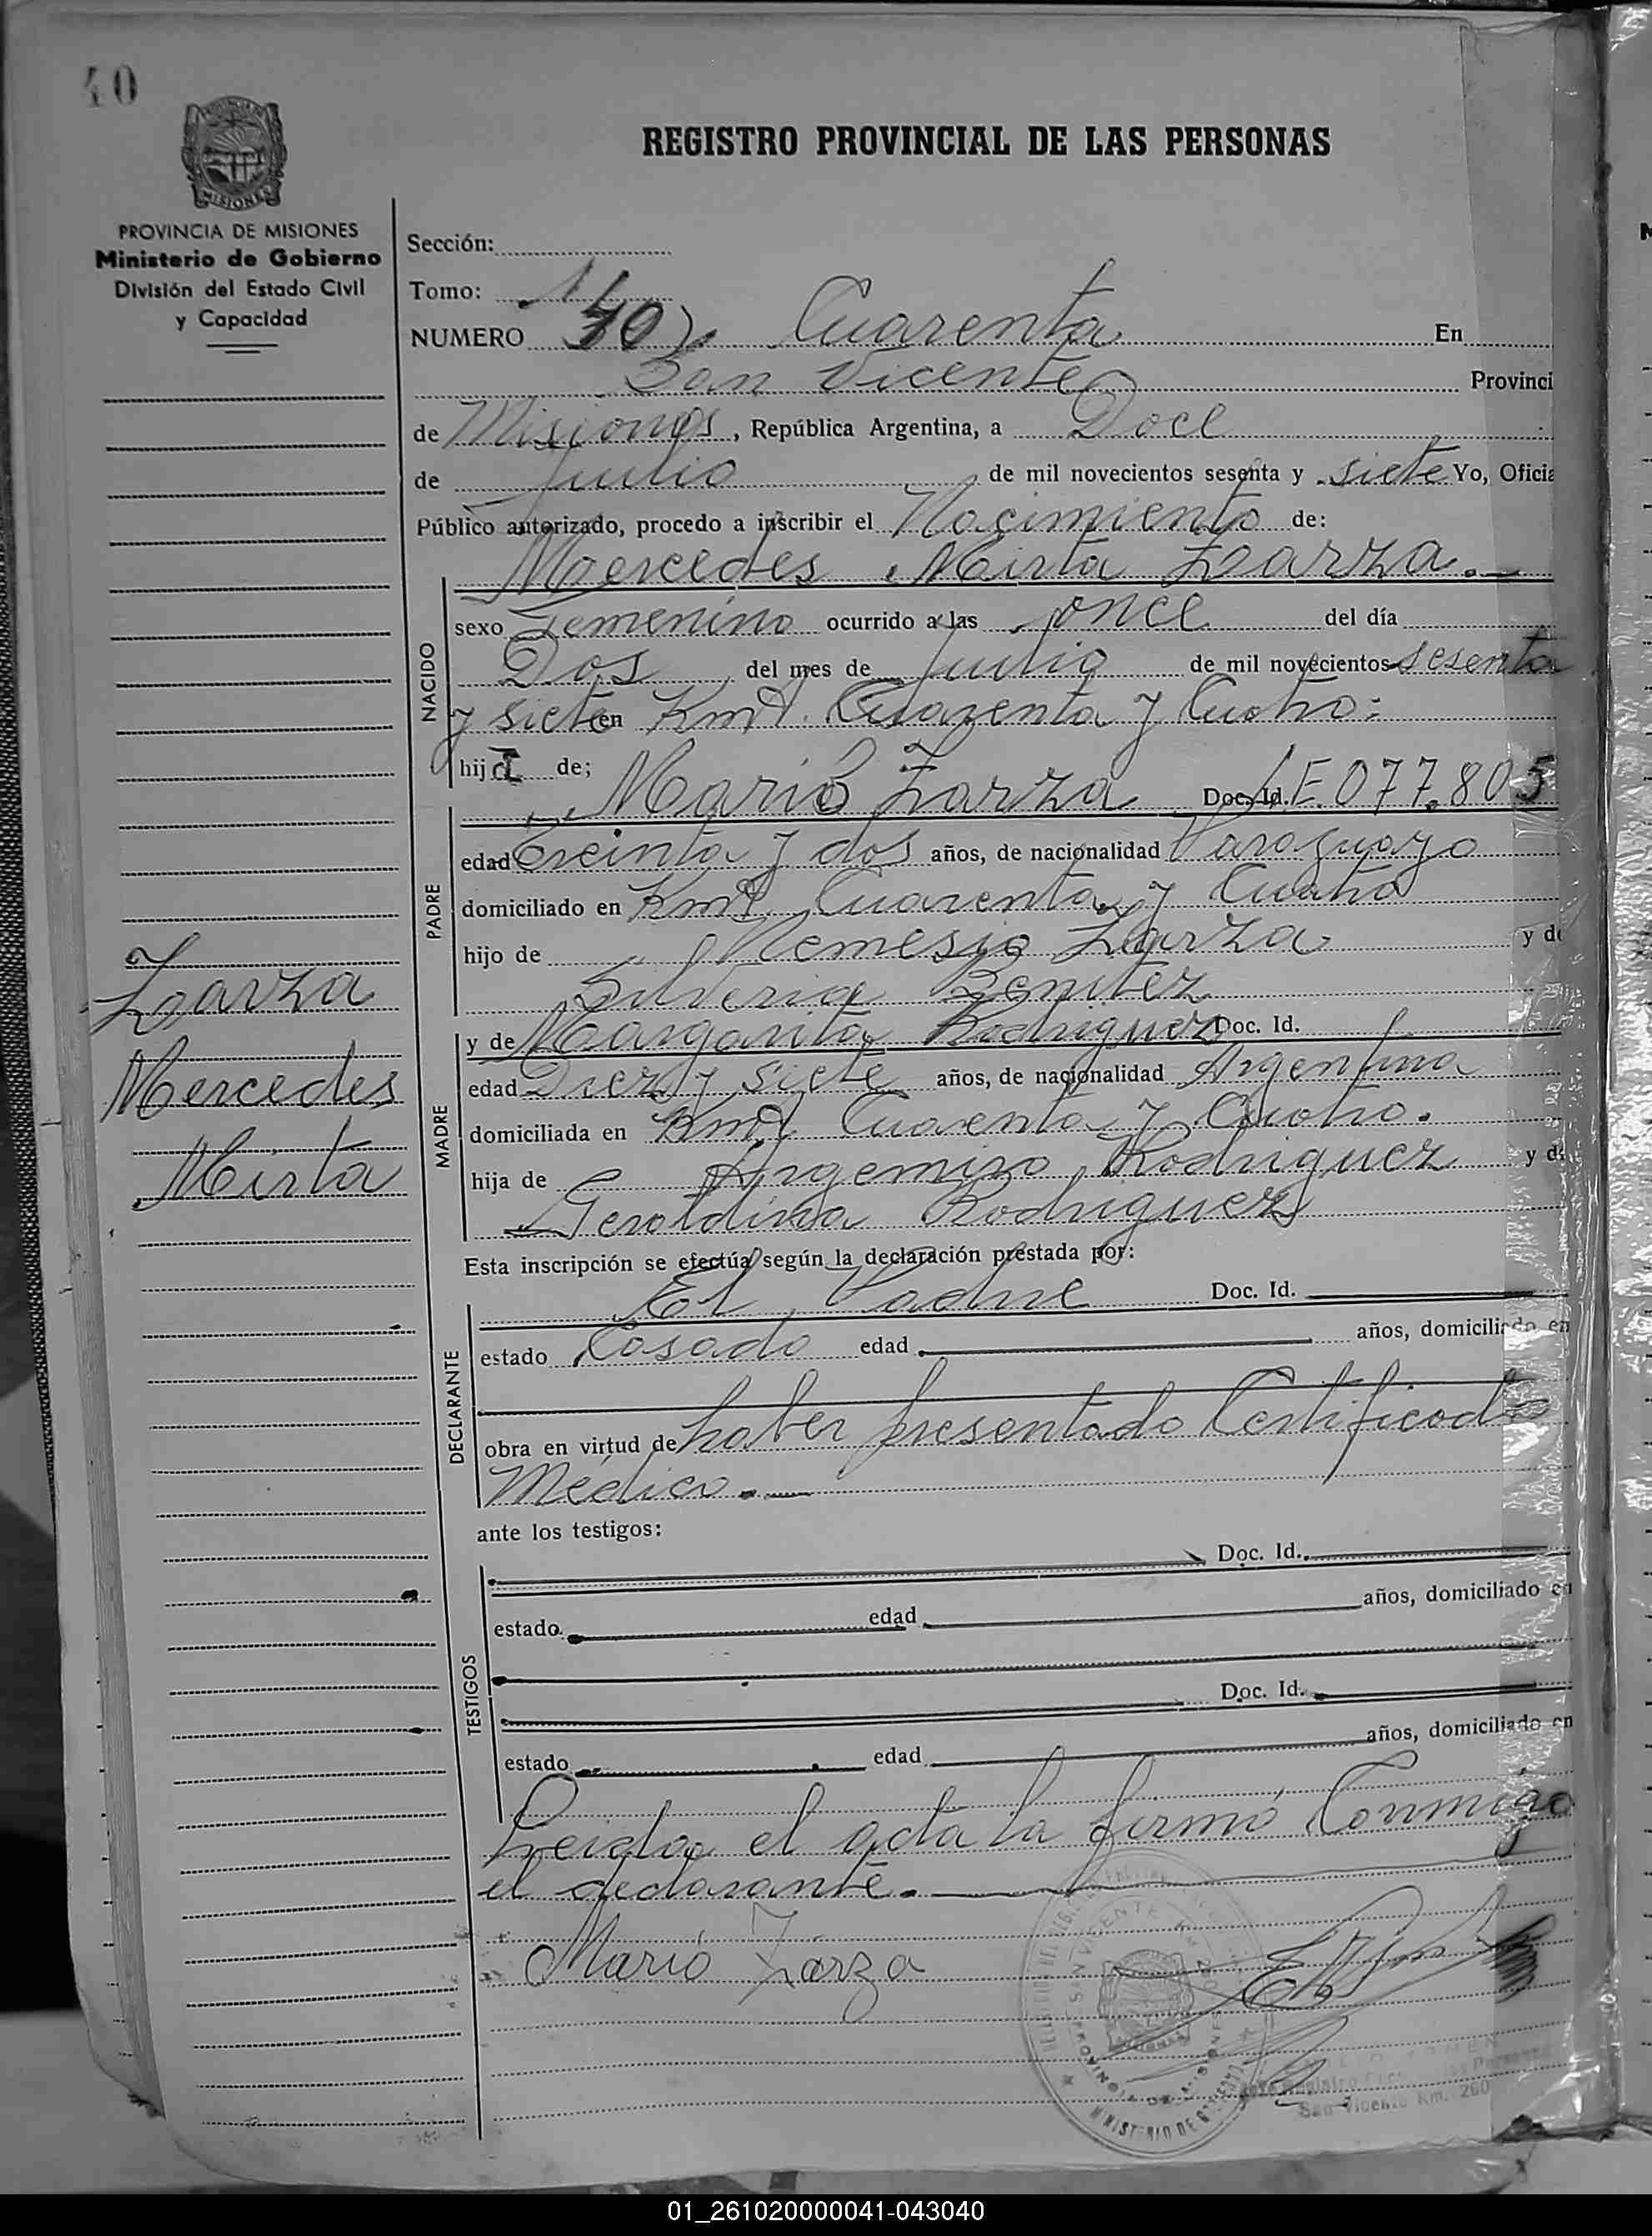 40
REGISTRO PROVINCIAL DE LAS PERSONAS
PROVINCIA DE MISIONES
Ministerio de Gobierno
División del Estado Civil
y Capacidad
Sección:
Tomo: 1
NUMERO 40 Cuarenta En
San Vicente Provinci
de Misiones, República Argentina, a Doce
de Julio de mil novecientos sesenta y siete Yo, Oficia
Público autorizado, procedo a inscribir el Nacimiento de:
Mercedes Mirta Zarza.
NACIDO
sexo Femenino ocurrido a las once del día
Dos del mes de Julio de mil novecientos sesenta
y siete en Kmt. Cuarenta y Cuatro:
hija de;
PADRE
Mario Zarza Doc. Id. E. 077.805
edad Treinta y dos años, de nacionalidad Paraguayo
domiciliado en Kmt. Cuarenta y Cuatro
hijo de Nemesio Zarza y de
Silveria Benitez
MADRE
y de Margarita Rodriguez Doc. Id.
edad Diez y siete años, de nacionalidad Argentina
domiciliada en Kmt Cuarenta y Cuatro.
hija de Argemiro Rodriguez y d
Geroldina Rodriguez
Zarza
Mercedes
Mirta
Esta inscripción se efectúa según la declaración prestada por:
DECLARANTE
El Padre Doc. Id.
estado Casado edad años, domiciliado en
obra en virtud de haber presentado Certificado
Médico.
ante los testigos:
TESTIGOS
Doc. Id.
estado edad años, domiciliado en
Doc. Id.
estado edad años, domiciliado en
Leida el acta la firmó Conmigo
el declarante.
Mario Zarza
SAN VICENTE
PROVINCIA DE MISIONES
MINISTERIO DE GOBIERNO
San Vicente Km. 260
01_261020000041-043040